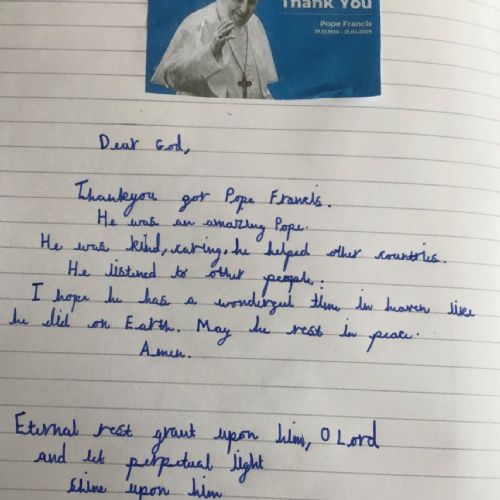 Thank You
Pope Francis
17.12.1936 - 21.04.2025
Dear God,
Thankyou for Pope Francis.
He was an amazing Pope.
He was kind, caring, he helped other countries.
He listened to other people.
I hope he has a wonderful time in heaven like
he did on Earth. May he rest in peace.
Amen.
Eternal rest grant upon him, O Lord
and let perpetual light
shine upon him